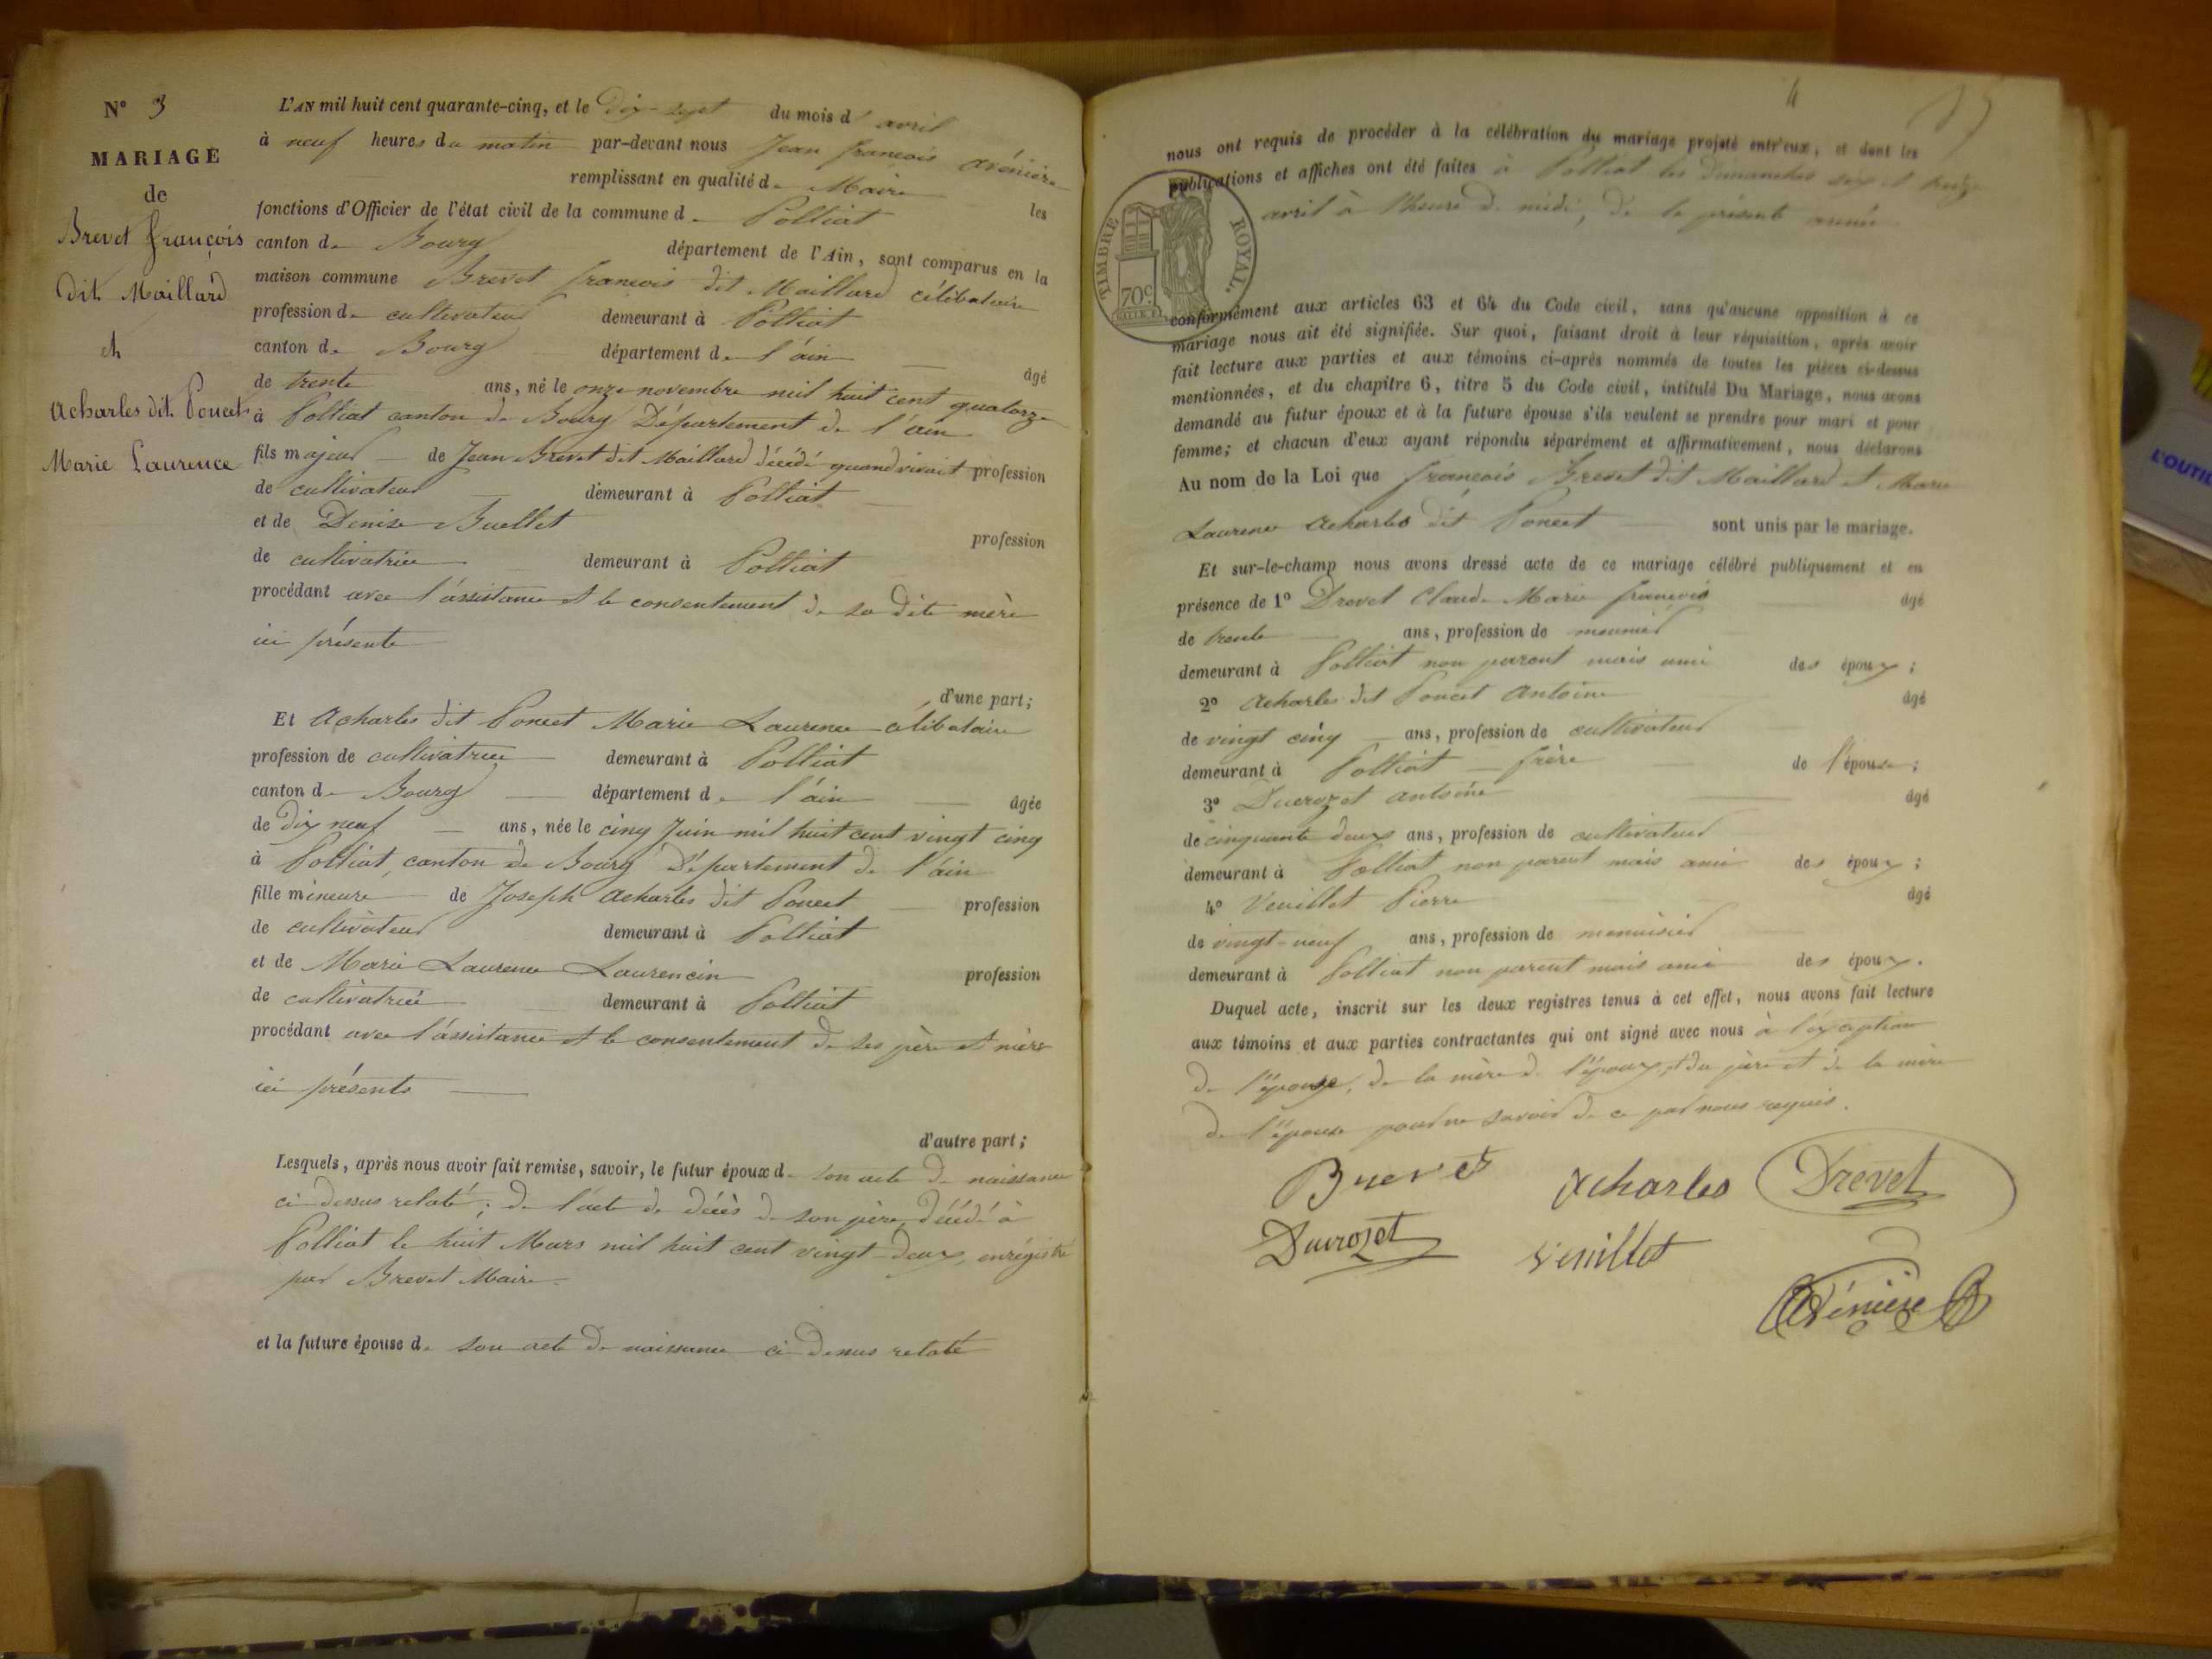 N° 3
MARIAGE
de
Brevet françois
dit Maillard
et
Acharles dit Poncet
Marie Laurence
L'AN mil huit cent quarante-cinq, et le dix-sept du mois d' avril
à neuf heures du matin par-devant nous Jean françois avénière
remplissant en qualité de Maire les
fonctions d'Officier de l'état civil de la commune de Polliat
canton de Bourg département de l'Ain, sont comparus en la
maison commune Brevet françois dit Maillard célibataire
profession de cultivateur demeurant à Polliat
canton de Bourg département de l'áin âgé
de trente ans, né le onze novembre mil huit cent quatorze
à Polliat canton de Bourg Département de l'ain
fils majeur de Jean Brevet dit Maillard décédé quand vivait profession
de cultivateur demeurant à Polliat
et de Denise Buellet profession
de cultivatrice demeurant à Polliat
procédant avec l'assistance et le consentement de sa dite mère
ici présente
d'une part;
Et Acharles dit Poncet Marie Laurence célibataire
profession de cultivatrice demeurant à Polliat
canton de Bourg département de l'ain âgée
de dix neuf ans, née le cinq Juin mil huit cent vingt cinq
à Polliat, canton de Bourg Département de l'áin
fille mineure de Joseph Acharles dit Poncet profession
de cultivateur demeurant à Polliat
et de Marie Laurence Laurencin profession
de cultivatrice demeurant à Polliat
procédant avec l'assistance et le consentement de ses père et mère
ici présents
d'autre part;
Lesquels, après nous avoir fait remise, savoir, le futur époux de son acte de naissance
ci dessus relaté; de l'acte de décès de son père, décédé à
Polliat le huit Mars mil huit cent vingt-deux, enrégistré
par Brevet Maire
et la future épouse de son acte de naissance ci dessus relaté
4
nous ont requis de procéder à la célébration du mariage projeté entr'eux, et dont les
publications et affiches ont été faites à Polliat les dimanches six et treize
avril à l'heure de midi, de la présente année
TIMBRE ROYAL.
70c
conformément aux articles 63 et 64 du Code civil, sans qu'aucune opposition à ce
mariage nous ait été signifiée. Sur quoi, faisant droit à leur réquisition, après avoir
fait lecture aux parties et aux témoins ci-après nommés de toutes les pièces ci-dessus
mentionnées, et du chapitre 6, titre 5 du Code civil, intitulé Du Mariage, nous avons
demandé au futur époux et à la future épouse s'ils veulent se prendre pour mari et pour
femme; et chacun d'eux ayant répondu séparément et affirmativement, nous déclarons
Au nom de la Loi que françois Brevet dit Maillard et Marie
Laurence Acharles dit Poncet sont unis par le mariage.
Et sur-le-champ nous avons dressé acte de ce mariage célébré publiquement et en
présence de 1° Drevet Claude Marie françois âgé
de trente ans, profession de meunier
demeurant à Polliat non parent mais ami des époux;
2° Acharles dit Poncet Antoine âgé
de vingt cinq ans, profession de cultivateur
demeurant à Polliat frère de l'épouse;
3° Ducrozet Antoine âgé
de cinquante deux ans, profession de cultivateur
demeurant à Polliat non parent mais ami des époux;
4° Veuillet Pierre âgé
de vingt-neuf ans, profession de menuisier
demeurant à Polliat non parent mais ami des époux.
Duquel acte, inscrit sur les deux registres tenus à cet effet, nous avons fait lecture
aux témoins et aux parties contractantes qui ont signé avec nous à l'exception
de l'épouse, de la mère de l'époux, et du père et de la mère
de l'épouse pour ne savoir de ce par nous requis.
Brevet Acharles Drevet
Ducrozet Veuillet
Avénière
L'OUTIL